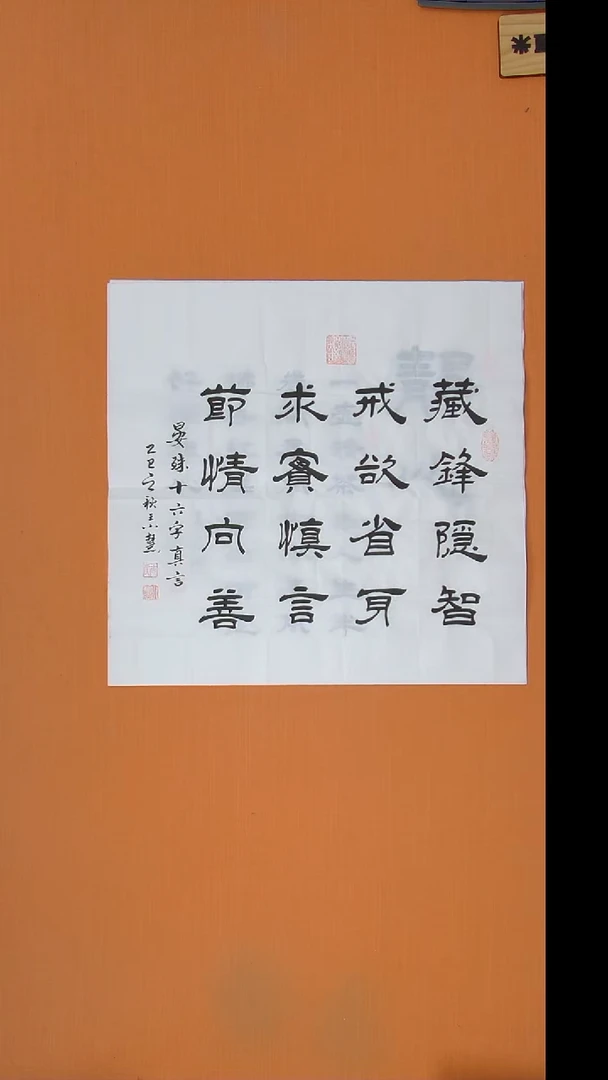 藏鋒隱智
戒欲省身
求實慎言
節情向善
晏殊十六字真言
乙巳之秋慧